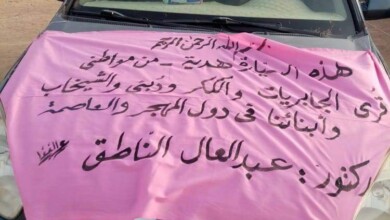 بسم الله الرحمن الرحيم
هذه السيارة هدية من مواطني
قرى الجابريات والكلكر ودبيبى والشيخاب
وأبنائنا فى دول المهجر والعاصمة
دكتور: عبدالعال الناطق